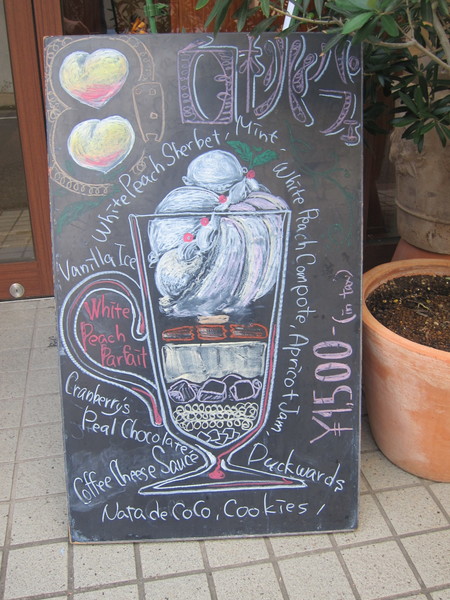 白桃パフェ
White Peach Sherbet, Mint,
White Peach Compote, Apricot Jam,
Vanilla Ice
White
Peach
Parfait
¥1,500- (in tax)
Cranberry's
Real Chocolate's
Coffee Cheese Sauce
Duckwards,
Nata de Coco, Cookies,